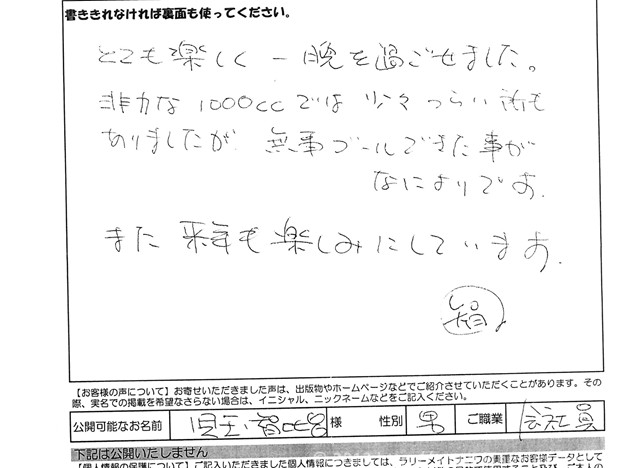 書ききれなければ裏面も使ってください。
とても楽しく一晩を過ごせました。
非力な1000ccでは少々つらい所も
ありましたが 無事ゴールできた事が
なによりです.
また 来年も楽しみにしています.
【お客様の声について】お寄せいただきました声は、出版物やホームページなどでご紹介させていただくことがあります。その
際、実名での掲載を希望なさらない場合は、イニシャル、ニックネームなどをご記入ください。
公開可能なお名前 児玉 様 性別 男 ご職業 会社員
下記は公開いたしません
【個人情報の保護について】ご記入いただきました個人情報につきましては、ラリーメイトナニワの貴重なお客様データとして